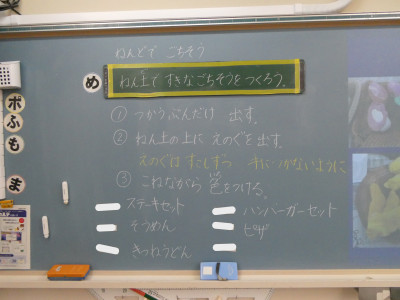 ねんどで ごちそう
め
ねん土で すきなごちそうをつくろう。
① つかうぶんだけ 出す。
② ねん土の上に えのぐを出す。
えのぐは すこしずつ 手に つかないように
③ こねながら 色をつける。
ステーキセット
ハンバーガーセット
そうめん
ピザ
きつねうどん
ポ
ふ
も
ま